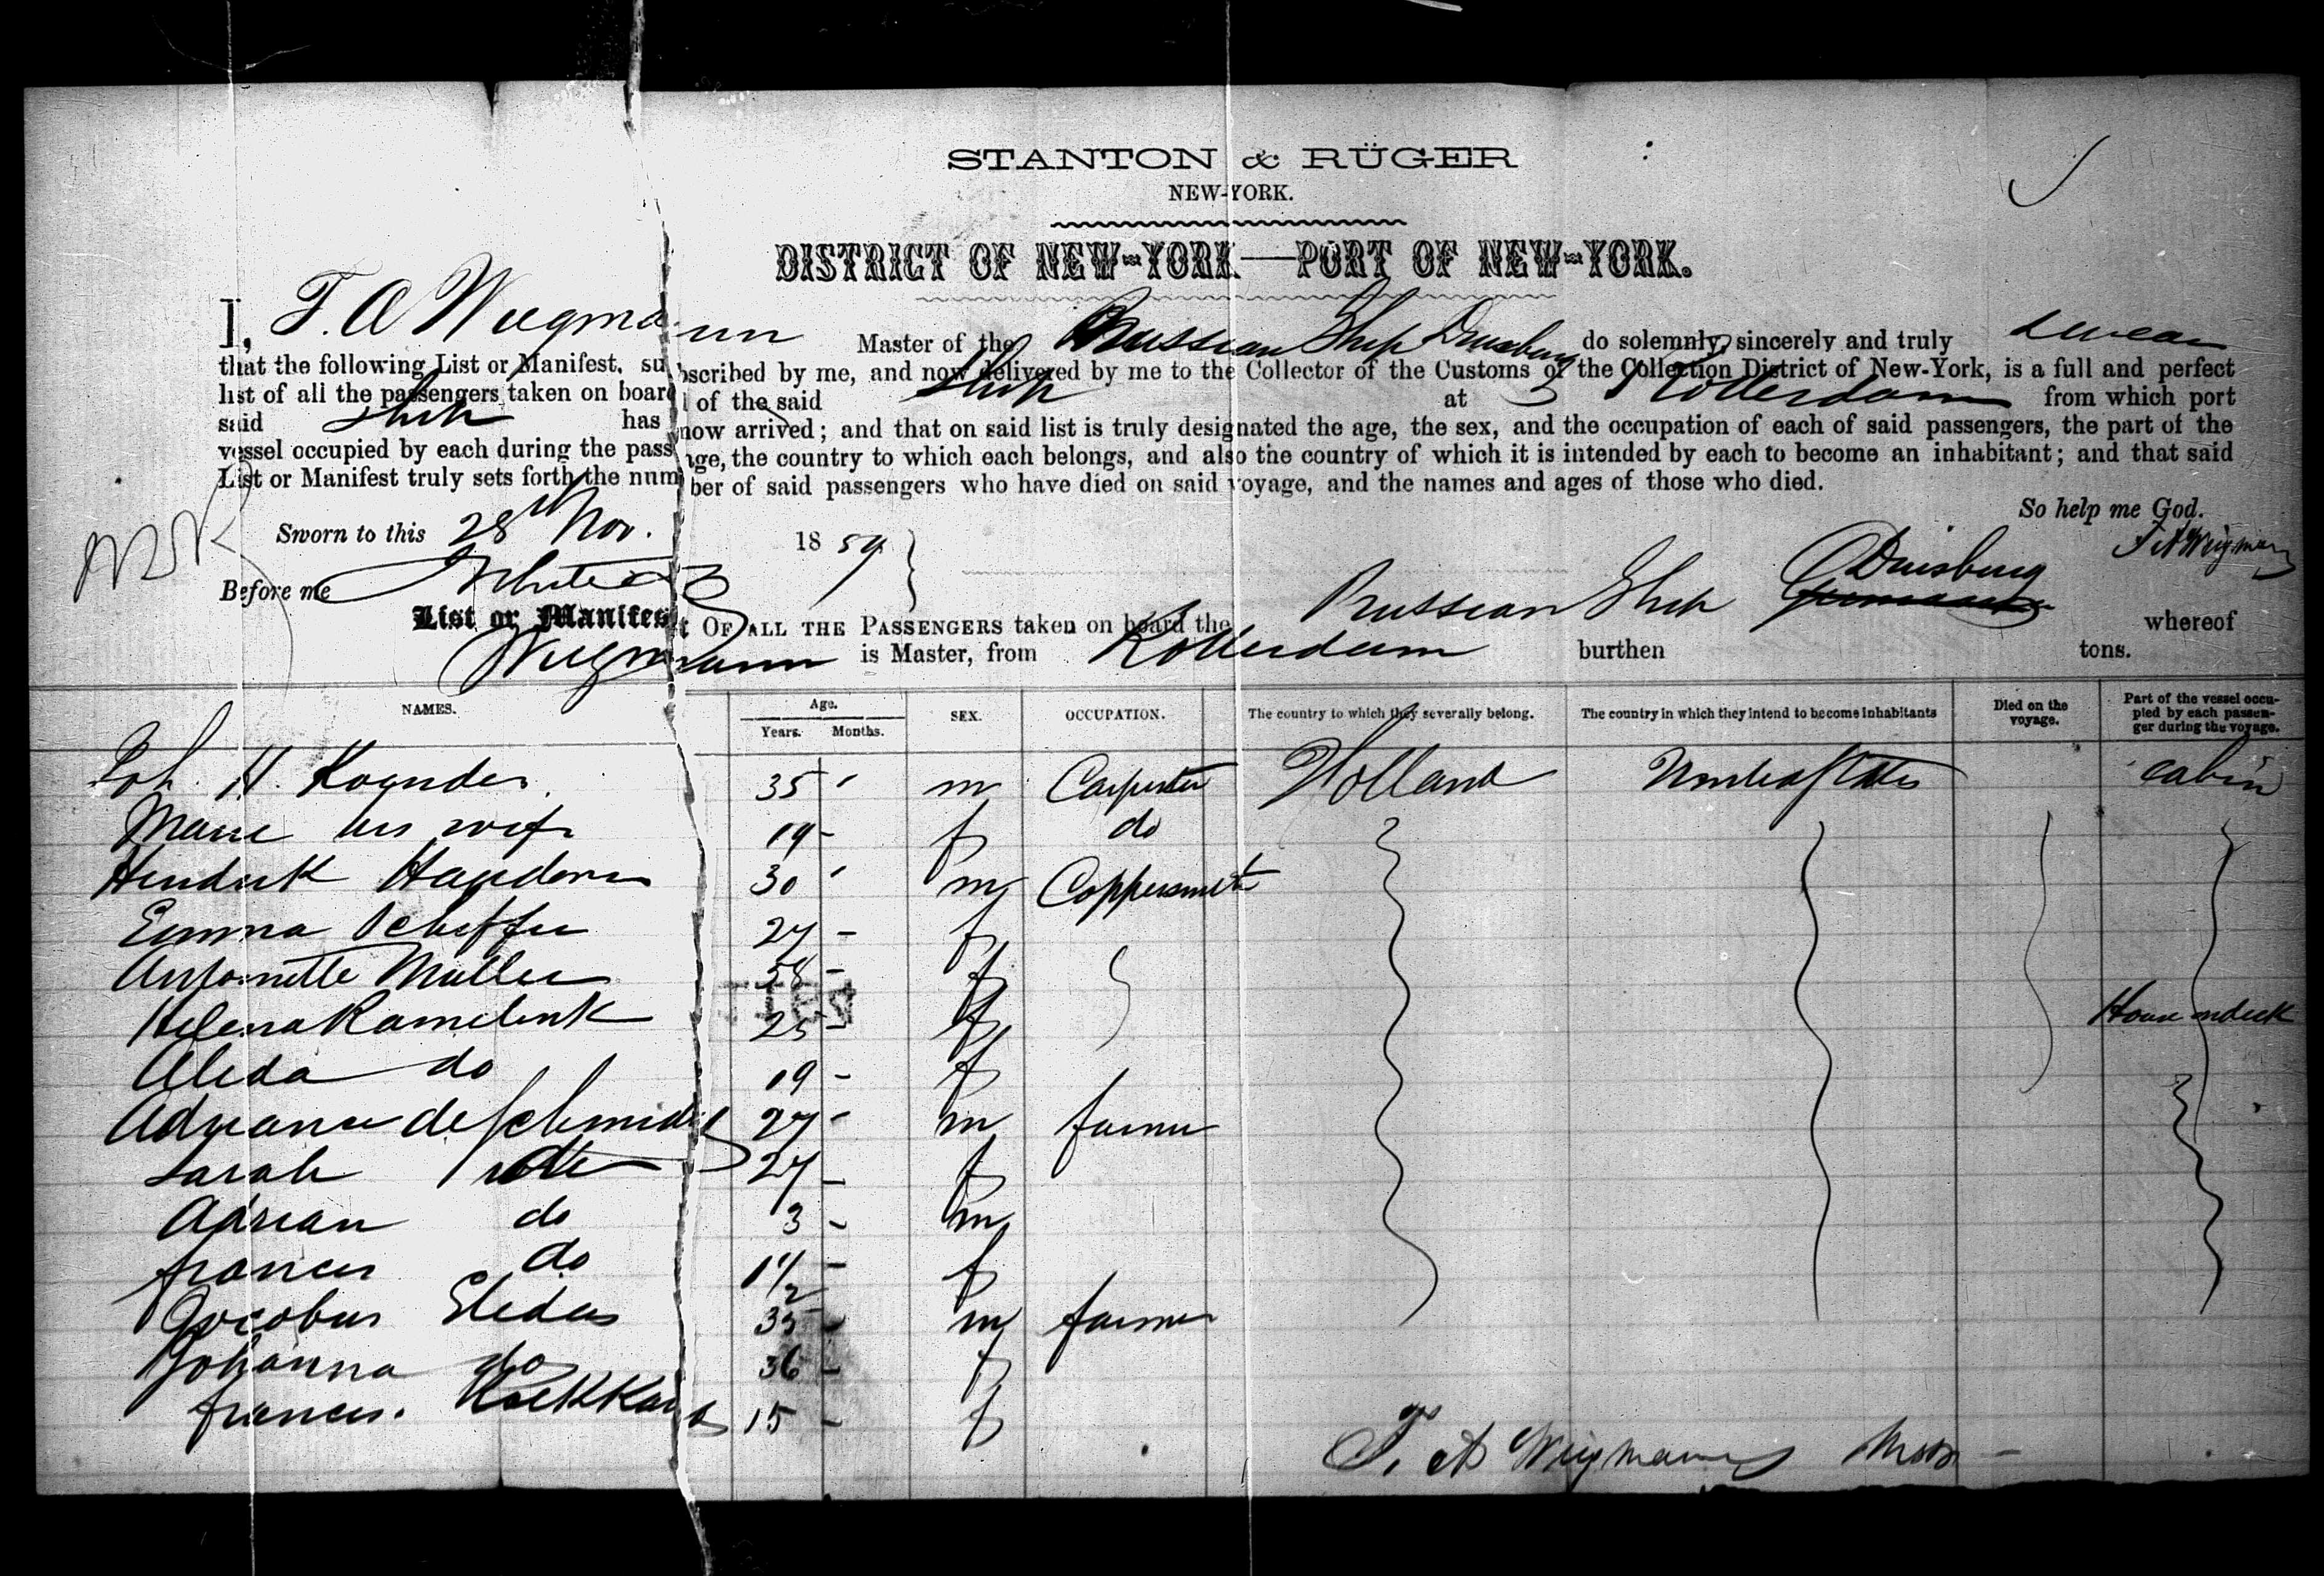 STANTON & RÜGER
NEW-YORK.
DISTRICT OF NEW-YORK—PORT OF NEW-YORK.
I, F. A Wiegmann Master of the Prussian Ship Duisburg do solemnly, sincerely and truly swear
that the following List or Manifest, subscribed by me, and now delivered by me to the Collector of the Customs of the Collection District of New-York, is a full and perfect
list of all the passengers taken on board of the said Ship at Rotterdam from which port
said Ship has now arrived; and that on said list is truly designated the age, the sex, and the occupation of each of said passengers, the part of the
vessel occupied by each during the passage, the country to which each belongs, and also the country of which it is intended by each to become an inhabitant; and that said
List or Manifest truly sets forth the number of said passengers who have died on said voyage, and the names and ages of those who died.
So help me God.
Sworn to this 28th Nov. 1859 F A Wiegmann
Before me White
List or Manifest OF ALL THE PASSENGERS taken on board the Prussian Ship Duisburg whereof
Wiegmann is Master, from Rotterdam burthen tons.
NAMES. Age. Years. Months. SEX. OCCUPATION. The country to which they severally belong. The country in which they intend to become inhabitants Died on the voyage. Part of the vessel occupied by each passenger during the voyage.
Joh. H. 35 m Carpenter Holland United States cabin
Marie his wife 19 - f do
Hendrik 30 m Coppersmith
Emma Scheffer 27 - f
Antoinette Muller 58 - f
Helena Ramelink 25 - f House on deck
Aleda do 19 - f
de Schmidt 27 - m farmer
Sarah 27 - f
Adrian do 3 - m
frances do 1 1/2 - f
Jocobus 35 - m farmer
Johanna do 36 - f
frances. 15 - f
F. A Wiegmann